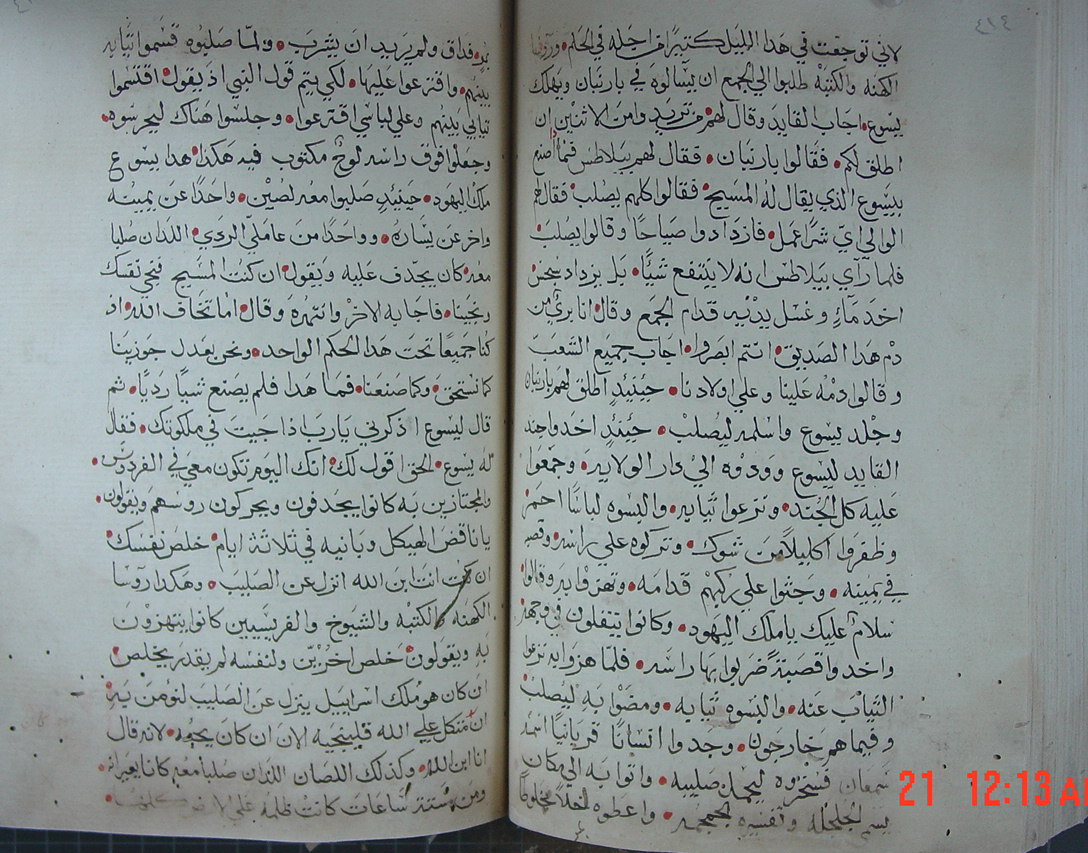 لاني توجعت في هدا الليل كتيرًا من اجله في الحلم • وروسا
الكهنه والكتبة طلبوا الي الجمع ان يسالوه في بارنبان ويهلك
يسوع • اجاب القايد وقال لهم من تريدوا من الاتنين ان
اطلق لكم • فقالوا بارنبان • فقال لهم بيلاطس فما اصنع
بيسوع الذي يقال له المسيح • فقالوا كلهم يصلب • فقال لهم
الوالي اي شرًا عمل • فازدادوا صياحًا وقالوا يصلب
فلما راي بيلاطس انه لا ينتفع شيًا • بل يزداد سجس
اخد ماء وغسل يديه قدام الجمع وقال انا بري من
دم هدا الصديق • انتم ابصروا • اجاب جميع الشعب
وقالوا دمه علينا وعلي اولادنا • حينيدٍ اطلق لهم بارنبان
وجلد يسوع واسلمه ليصلب • حينيدٍ اخدوا جند
القايد ليسوع وودوه الي دار الولايه • وجمعوا
عليه كل الجند • ونزعوا تيابه • والبسوه لباسًا احمر
وظفروا اكليلاً من شوك • وتركوه علي راسه • وقصبه
في يمينه • وجتوا علي ركبهم قدامه • وتهزوا به وقالوا
سلام عليك ياملك اليهود • وكانوا يتفلون في وجهه
واخدوا قصبة ضربوا بها راسه • فلما هزوا به نزعوا
التياب عنه • والبسوه تيابه • ومضوا به ليصلب
وفيما هم خارجون • وجدوا انسانًا قريانيًا اسمه
سمعان فسخروه ليحمل صليبه • واتوا به الي مكان
يسم الجلجله وتفسيره الجمجمه • واعطوه خلاً مخلوطًا
بمر • فداق ولم يريد ان يشرب • ولما صلبوه قسموا تيابه
بينهم • واقترعوا عليها • لكي يتم قول النبي اد يقول • اقتسموا
تيابي بينهم وعلي لباسي اقترعوا • وجلسوا هناك ليحرسوه •
وجعلوا فوق راسه لوح مكتوب فيه هكدا • هدا يسوع
ملك اليهود • حينيدٍ صلبوا معه لصين • واحدًا عن يمينه
واخر عن يساره • وواحدًا من عاملي الردي • اللدان صلبا
معه • كان يجدف عليه ويقول • ان كنت المسيح فنجي نفسك
ونجينا • فاجابه الاخر وانتهره وقال • اما تخاف الله • اد
كنا جميعًا تحت هدا الحكم الواحد • ونحن بعدل جوزينا
كما نستحق • وكما صنعنا • فما هدا فلم يصنع شيًا رديًا • تم
قال ليسوع ادكرني يارب ادا جيت في ملكوتك • فقال
له يسوع • الحق اقول لك • انك اليوم تكون معي في الفردوس •
والمجتازين به كانوا يجدفون ويحركون روسهم ويقولون •
ياناقض الهيكل وبانيه في تلاتة ايام • خلص نفسك •
ان كنت انت ابن الله انزل عن الصليب • وهكدا روسا
الكهنه والكتبه والشيوخ والفريسيين كانوا يتهزون
به ويقولون • خلص اخرين ولنفسه لم يقدر يخلص •
ان كان هو ملك اسراييل ينزل عن الصليب لنومن به •
ان متكل علي الله فلينجيه الان ان كان يحبه • لانه قال
انا ابن الله • وكدلك اللصان اللدان صلبا معه كانا يعيرانه •
ومن ستة ساعات كانت ظلمه علي
21 12:13 AM